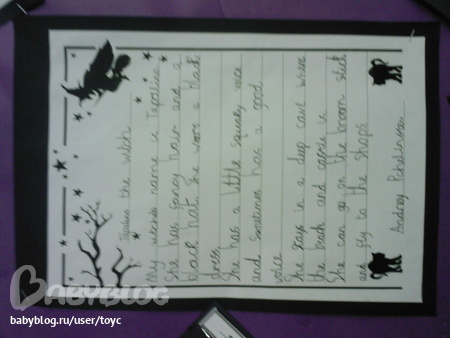 the witch
My witch's name is
She has fancy hair and a
black hat. She wears a black
dress.
She has a little squeaky voice
and sometimes has a good
voice
She stays in a deep cave where
the beach and is
She can go on the broom stick
and fly to the shops
BABYBLOG
babyblog.ru/user/toyc